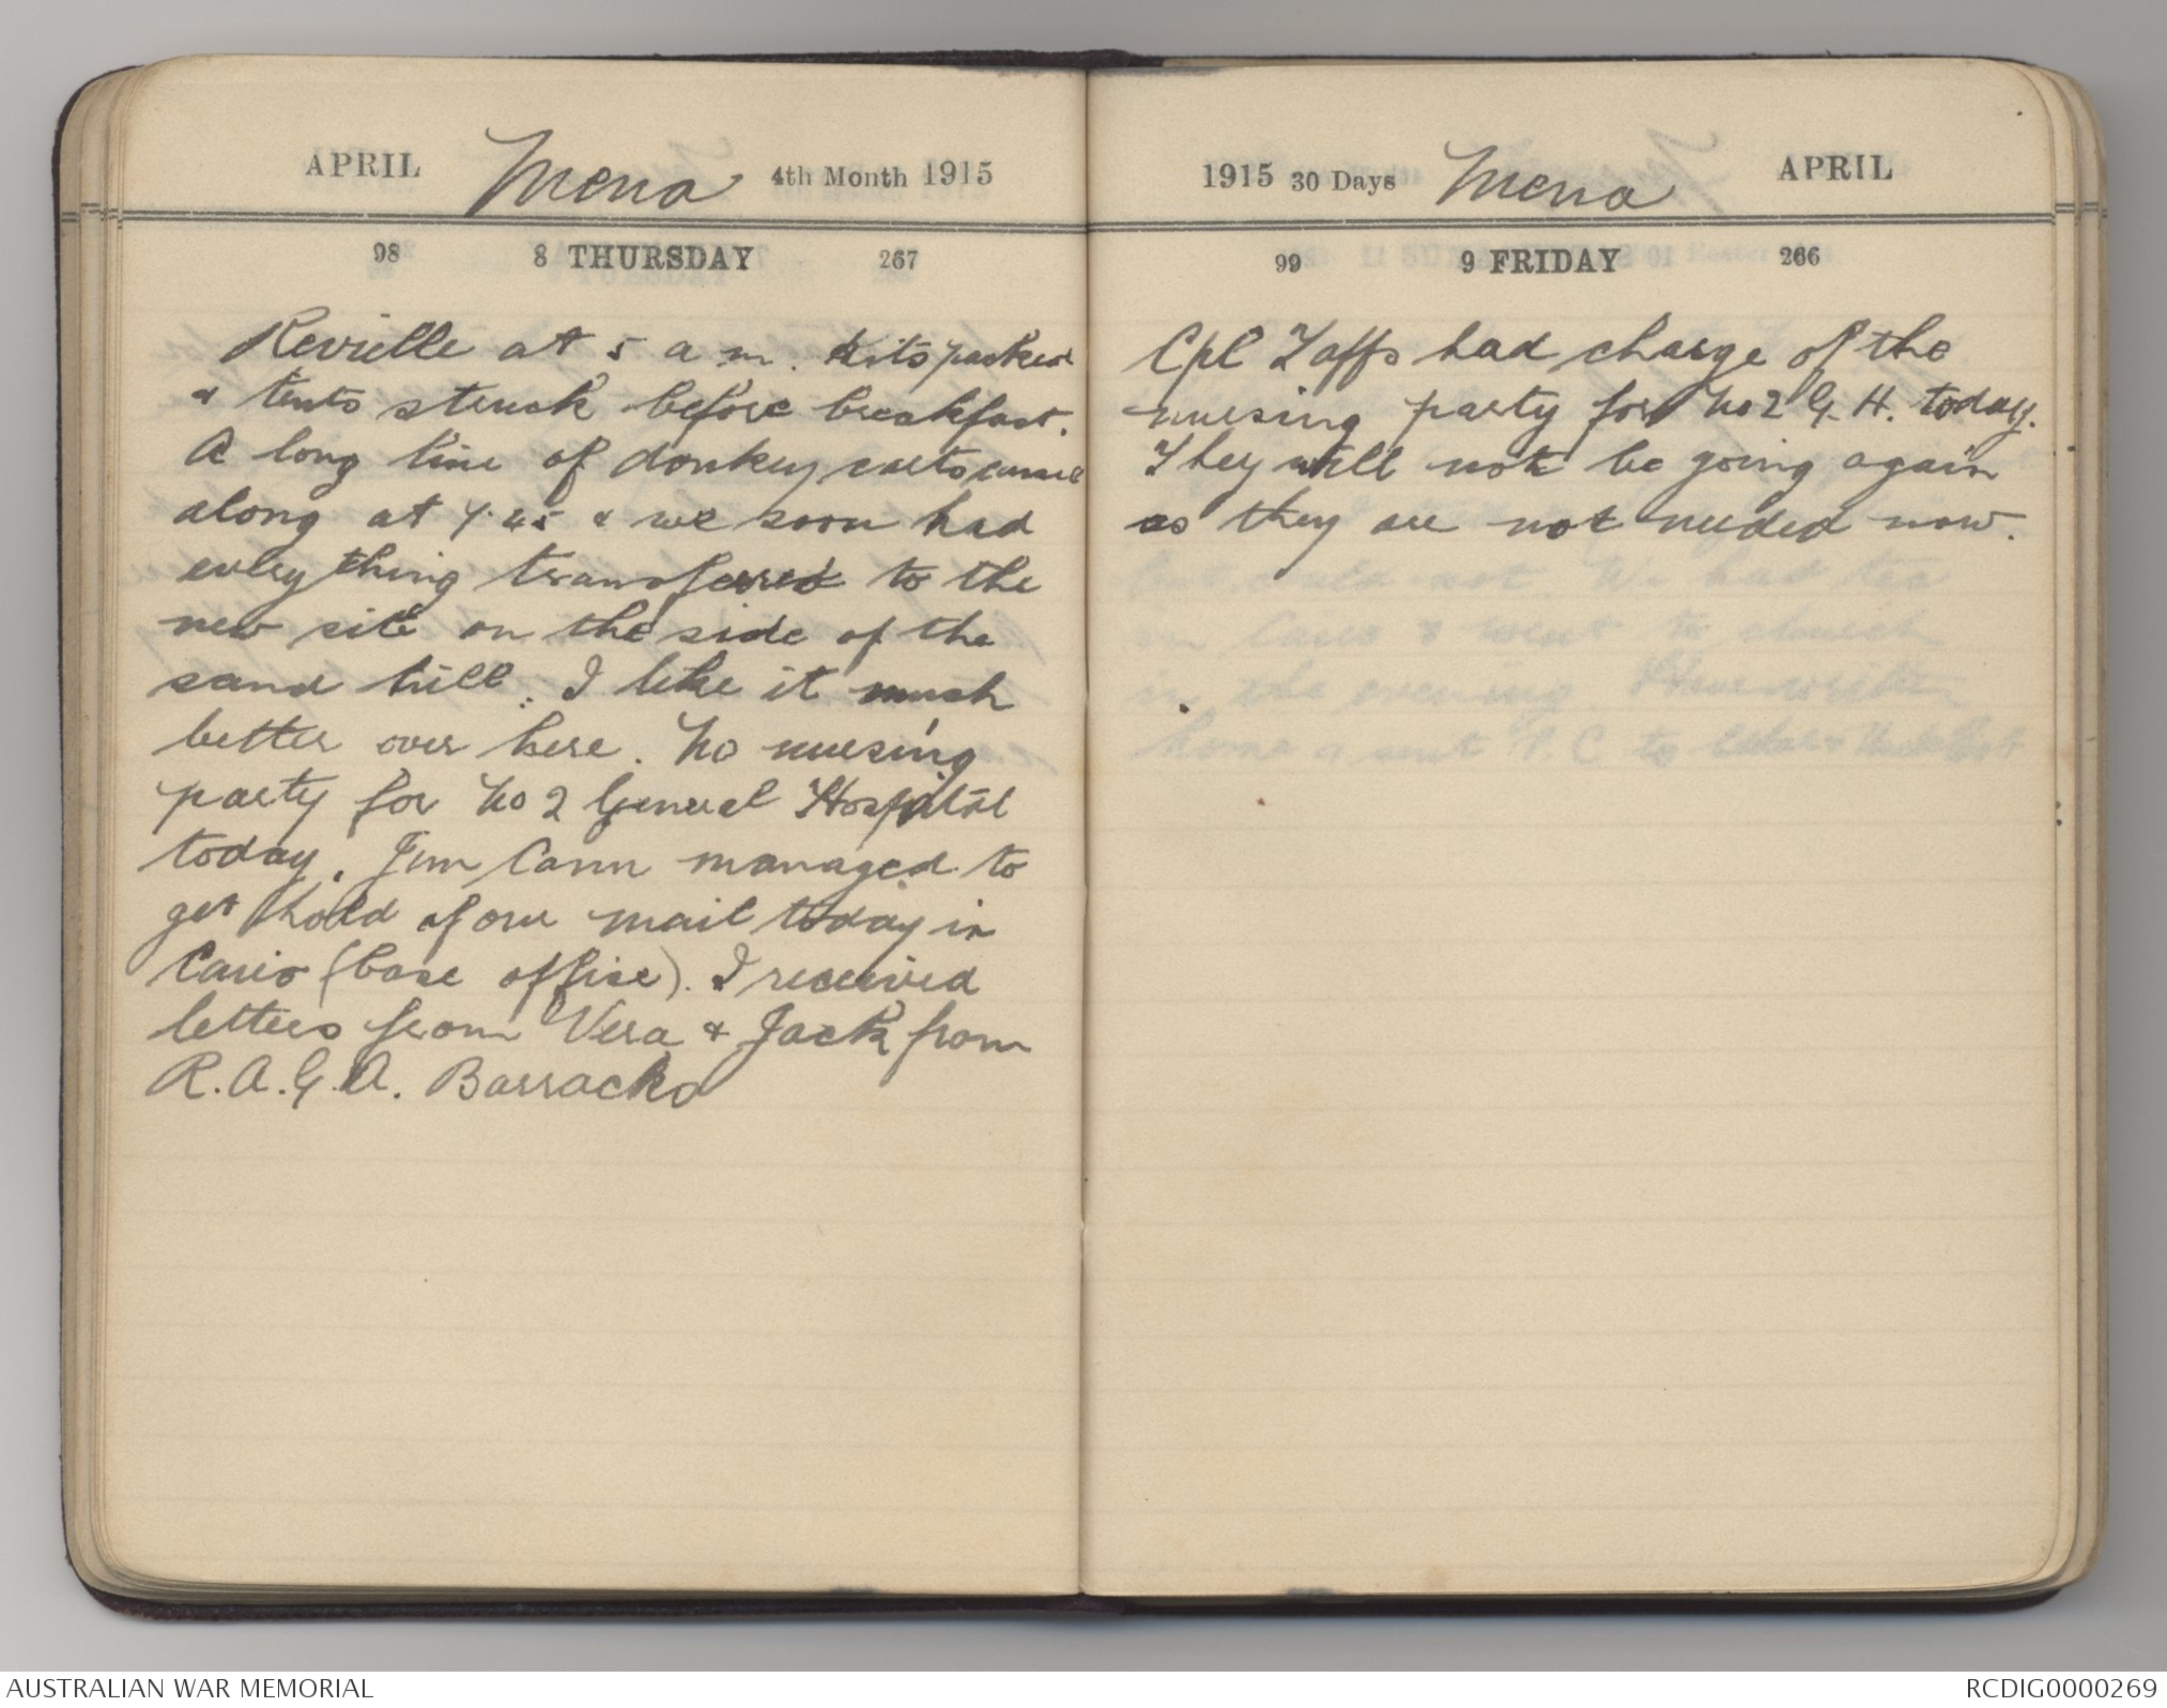 APRIL Mena 4th Month 1915
98 8 THURSDAY 267
Revielle at 5 a m. Kits packed
& tents struck before breakfast.
A long line of donkey carts came
along at 7.45 & we soon had
every thing transferred to the
new site on the side of the
sand hill. I like it much
better over here. No nursing
party for No 2 General Hospital
today. Jim Cann managed to
get hold of our mail today in
Cairo (base office). I received
letters from Vera & Jack from
R.A.G.A. Barracks
1915 30 Days Mena APRIL
99 9 FRIDAY 266
Cpl Taffs had charge of the
nursing party for No 2 G. H. today.
They will not be going again
as they are not needed now.
AUSTRALIAN WAR MEMORIAL
RCDIG0000269